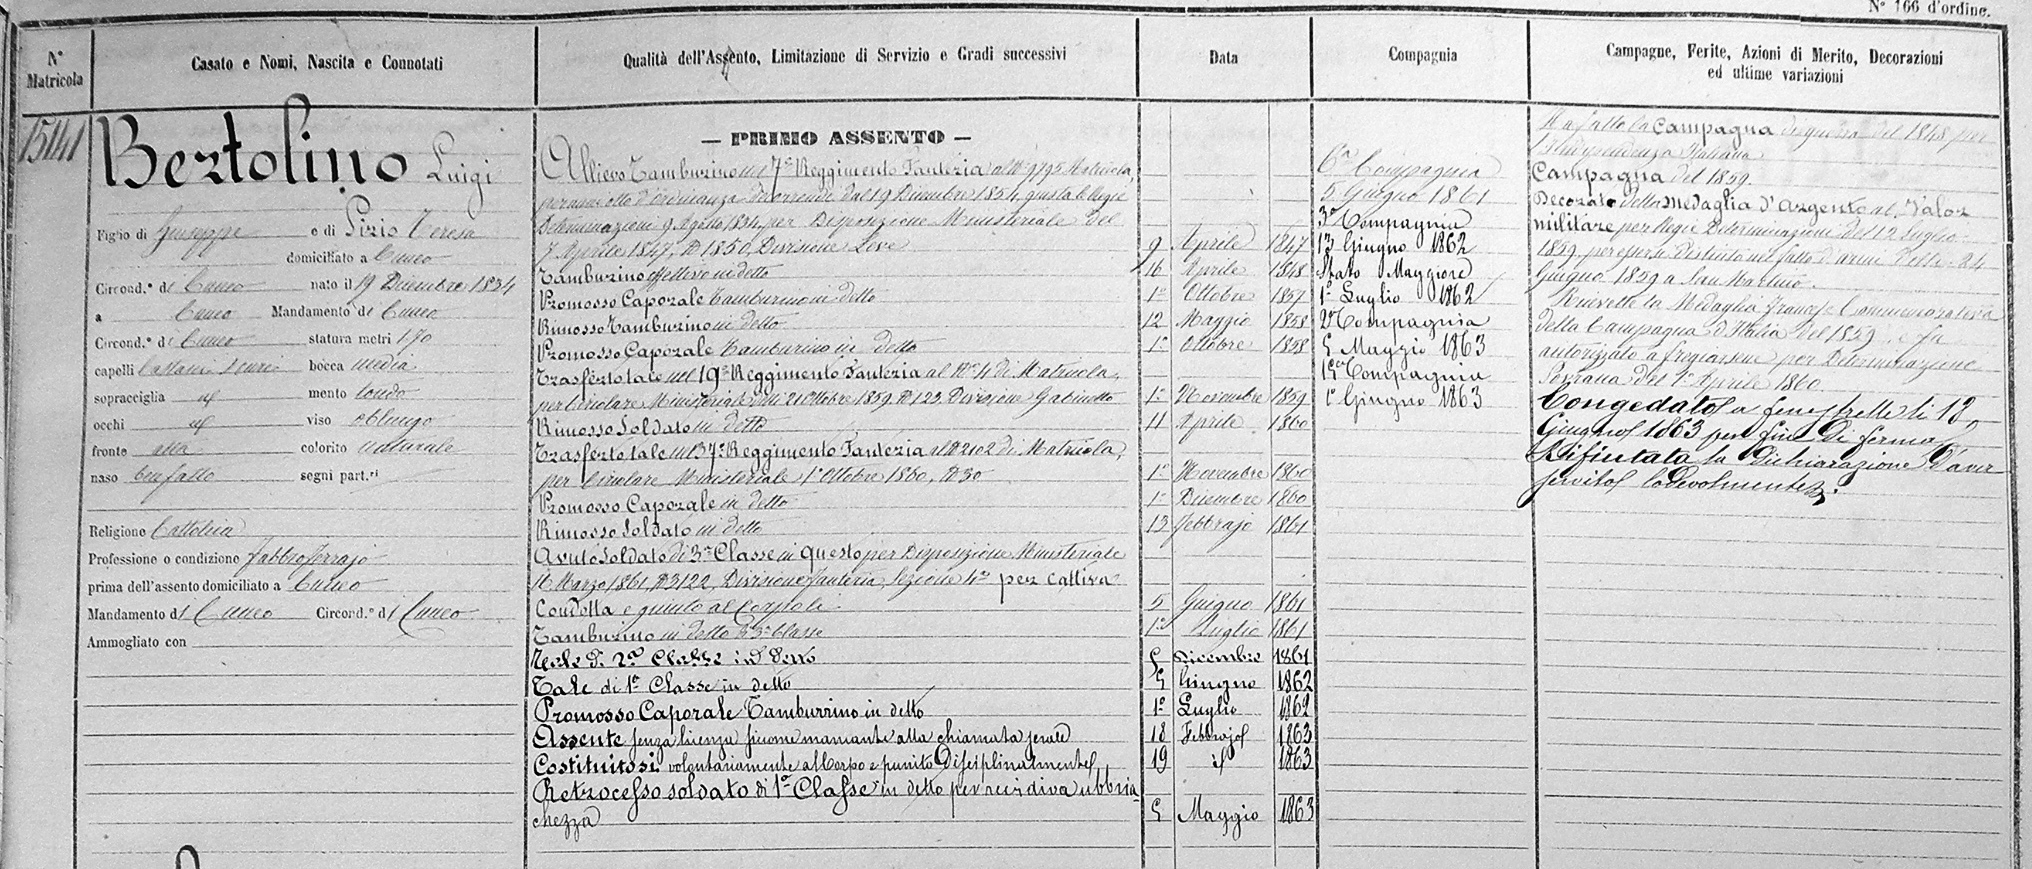 N° 166 d'ordine.
N° Matricola
Casato e Nomi, Nascita e Connotati
Qualità dell'Assento, Limitazione di Servizio e Gradi successivi
Data
Compagnia
Campagne, Ferite, Azioni di Merito, Decorazioni ed ultime variazioni
15141
Bertolino Luigi
Figlio di Giuseppe e di Pizio Teresa
domiciliato a Cuneo
Circond.° di Cuneo nato il 19 Dicembre 1834
a Cuneo Mandamento di Cuneo
Circond.° di Cuneo statura metri 1.70
capelli Castani scuri bocca media
sopracciglia id mento tondo
occhi id viso oblungo
fronte alta colorito naturale
naso ben fatto segni part.ri
Religione Cattolica
Professione o condizione Fabbro ferrajo
prima dell'assento domiciliato a Cuneo
Mandamento di Cuneo Circond.° di Cuneo
Ammogliato con
— PRIMO ASSENTO —
Allievo Tamburino nel 7° Reggimento Fanteria al N° 9795 Matricola,
per anni otto d'ordinanza decorrendi dal 19 Dicembre 1854, giusta le Regie
Determinazioni 9 Agosto 1834, per Disposizione Ministeriale del
7 Aprile 1847, N° 1850, Divisione Leve 9 Aprile 1847
Tamburino effettivo in detto 16 Aprile 1848
Promosso Caporale Tamburino in detto 1° Ottobre 1857
Rimosso Tamburino in detto 12 Maggio 1858
Promosso Caporale Tamburino in detto 1° Ottobre 1858
Trasferto tale nel 19° Reggimento Fanteria al N° 4 di Matricola,
per Circolare Ministeriale delli 21 Ottobre 1859 N° 123. Divisione Gabinetto 1° Novembre 1859
Rimosso Soldato in detto 11 Aprile 1860
Trasferto tale nel 37° Reggimento Fanteria al N° 2102 di Matricola,
per Circolare Ministeriale 1° Ottobre 1860, N° 30 1° Novembre 1860
Promosso Caporale in detto 1° Dicembre 1860
Rimosso Soldato in detto 13 Febbrajo 1861
Avuto Soldato di 3a Classe in questo per Disposizione Ministeriale
16 Marzo 1861, N° 3122, Divisione Fanteria, Sezione 4a per cattiva
Condotta e giunto al Corpo li 5 Giugno 1861
Tamburino in detto di 3a Classe 1° Luglio 1861
Tale di 2a Classe in detto 5 Dicembre 1861
Tale di 1a Classe in detto 5 Giugno 1862
Promosso Caporale Tamburrino in detto 1° Luglio 1862
Assente senza licenza siccome mancante alla chiamata serale 18 Febbrajo 1863
Costituitosi volontariamente al Corpo e punito Disciplinarmente 19 id 1863
Retrocesso soldato di 1a Classe in detto per recidiva ubbria-
chezza 5 Maggio 1863
6a Compagnia
5 Giugno 1861
3a Compagnia
13 Giugno 1862
Stato Maggiore
1° Luglio 1862
2a Compagnia
5 Maggio 1863
Compagnia
1° Giugno 1863
Ha fatto la Campagna di guerra del 1848 per
l'Indipendenza Italiana
Campagna del 1859.
Decorato della medaglia d'argento al Valor
militare per Regie Determinazioni del 12 Luglio
1859, per essersi distinto nel fatto d'armi delli 24
Giugno 1859 a San Martino.
Ricevette la Medaglia Francese Commemorativa
della Campagna d'Italia del 1859, e fu
autorizzato a fregiarsene per Determinazione
Sovrana del 1° Aprile 1860.
Congedato a Fenestrelle li 12
Giugno 1863 per fine di ferma
Rifiutata la Dichiarazione d'aver
servito lodevolmente.